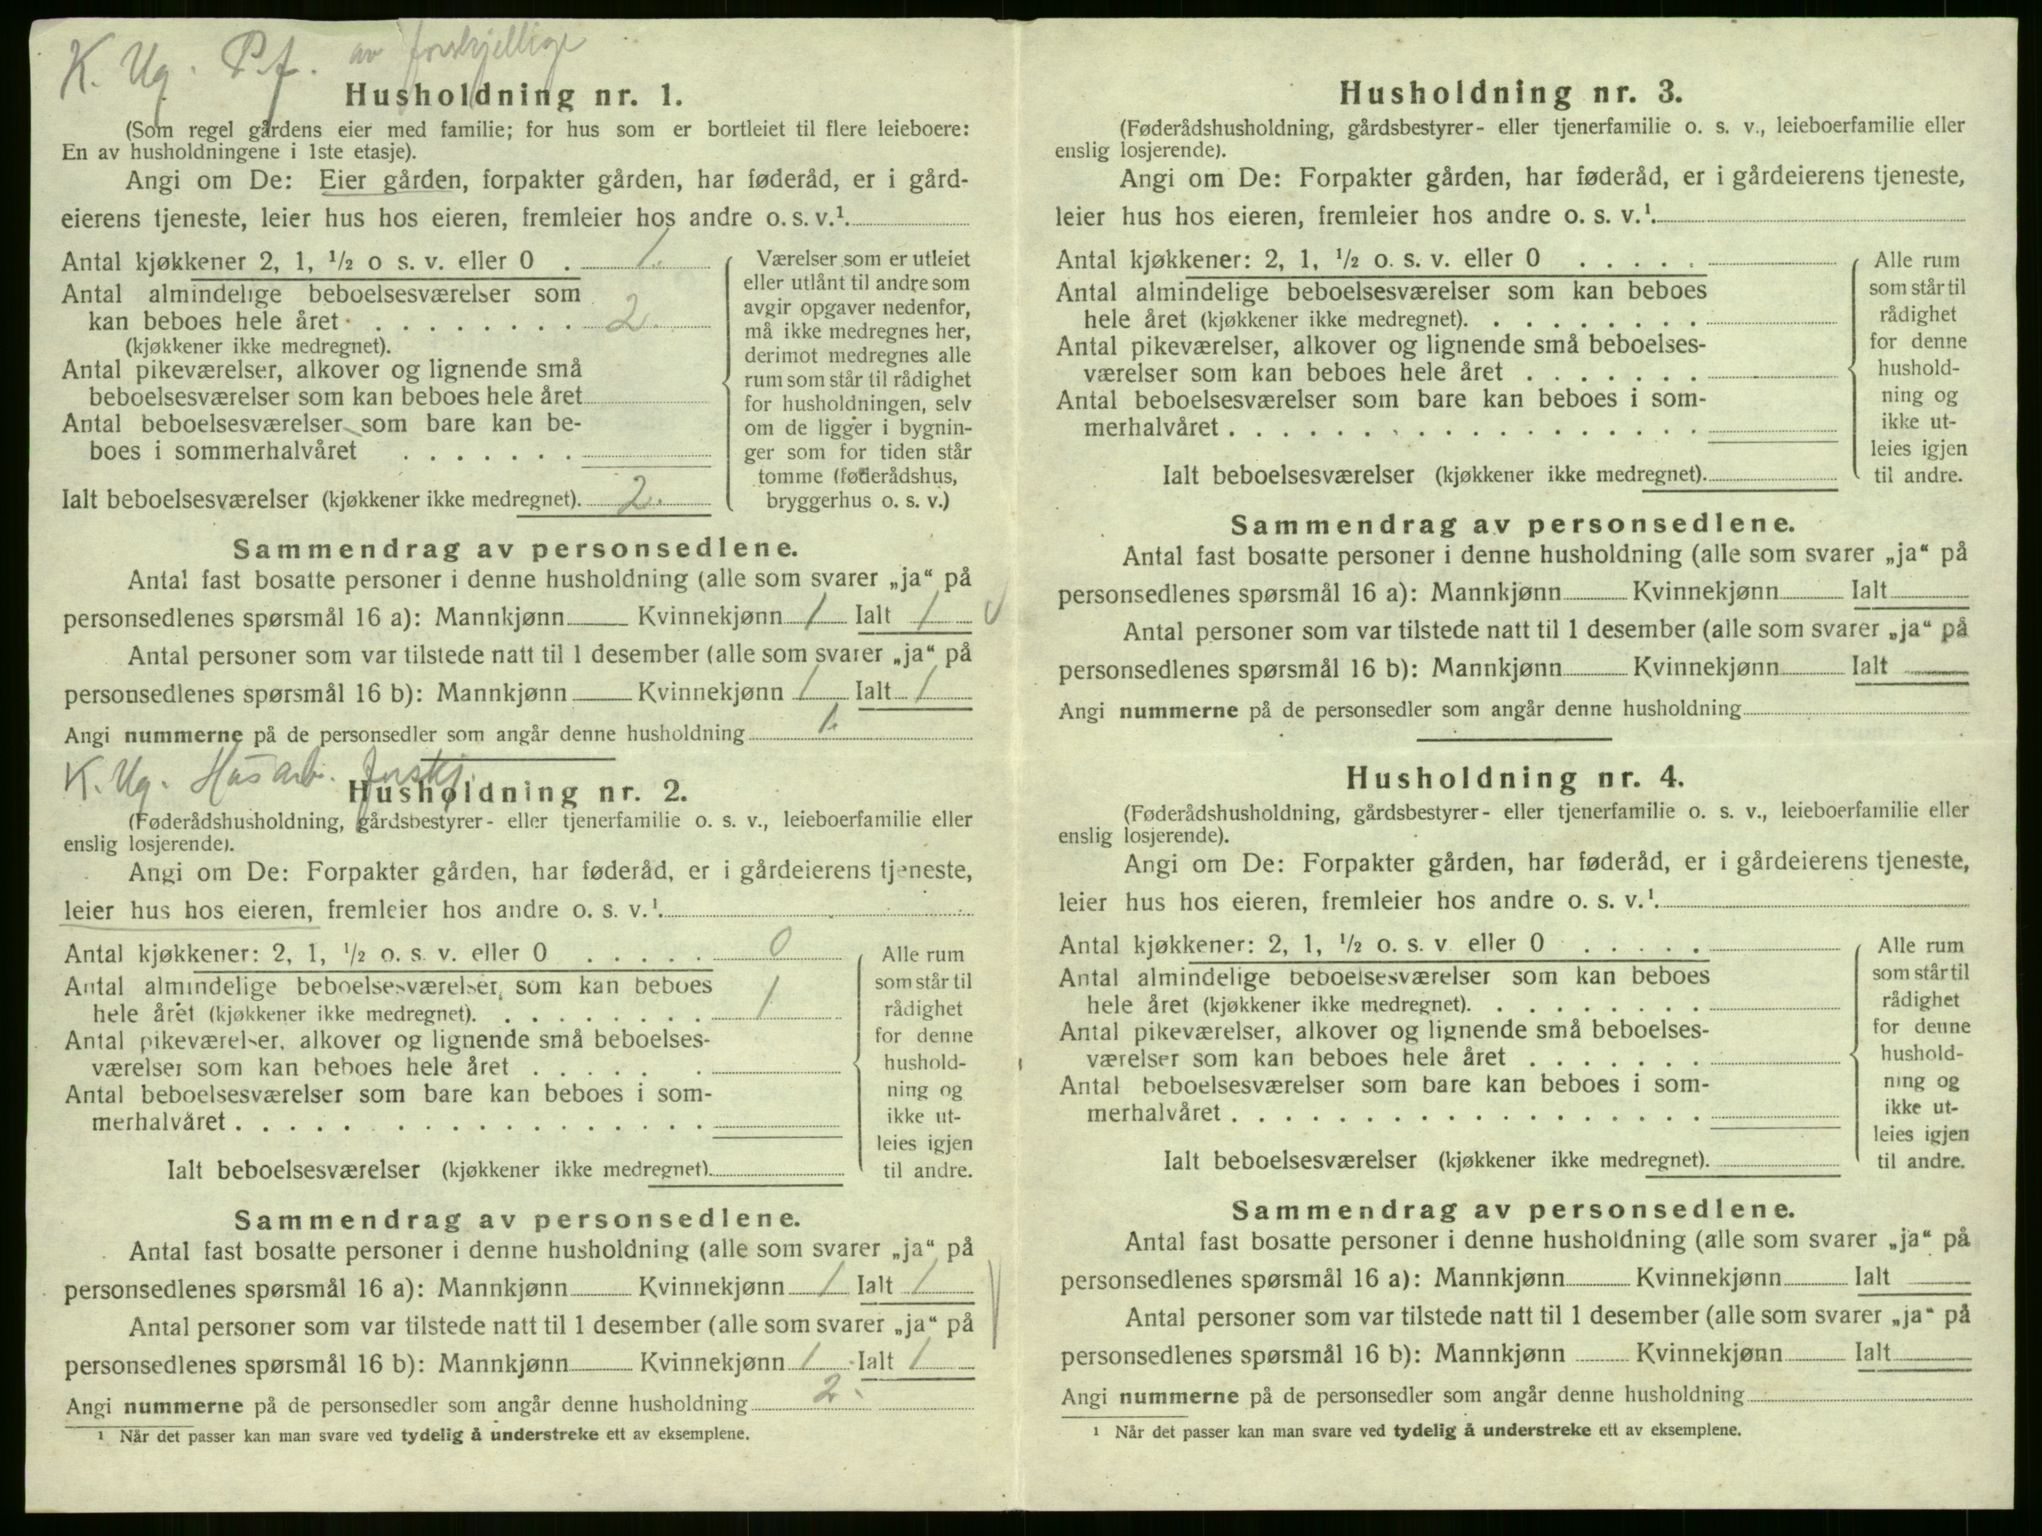 K. Ug. P.f. av forskjellige
Husholdning nr. 1.
(Som regel gårdens eier med familie; for hus som er bortleiet til flere leieboere:
En av husholdningene i 1ste etasje).
Angi om De: Eier gården, forpakter gården, har føderåd, er i gård-
eierens tjeneste, leier hus hos eieren, fremleier hos andre o. s. v.¹.
Antal kjøkkener 2, 1, ½ o s. v. eller 0 . 1.
Antal almindelige beboelsesværelser som
kan beboes hele året . . . . . . . . 2.
(kjøkkener ikke medregnet).
Antal pikeværelser, alkover og lignende små
beboelsesværelser som kan beboes hele året
Antal beboelsesværelser som bare kan be-
boes i sommerhalvåret . . . . . . .
Ialt beboelsesværelser (kjøkkener ikke medregnet). 2.
Værelser som er utleiet
eller utlånt til andre som
avgir opgaver nedenfor,
må ikke medregnes her,
derimot medregnes alle
rum som står til rådighet
for husholdningen, selv
om de ligger i bygnin-
ger som for tiden står
tomme (føderådshus,
bryggerhus o. s. v.)
Sammendrag av personsedlene.
Antal fast bosatte personer i denne husholdning (alle som svarer „ja“ på
personsedlenes spørsmål 16 a): Mannkjønn Kvinnekjønn 1 Ialt 1
Antal personer som var tilstede natt til 1 desember (alle som svarer „ja“ på
personsedlenes spørsmål 16 b): Mannkjønn Kvinnekjønn 1 Ialt 1
Angi nummerne på de personsedler som angår denne husholdning 1.
K. Ug. Husarb. forskj.
Husholdning nr. 2.
(Føderådshusholdning, gårdsbestyrer- eller tjenerfamilie o. s. v., leieboerfamilie eller
enslig losjerende).
Angi om De: Forpakter gården, har føderåd, er i gårdeierens tjeneste,
leier hus hos eieren, fremleier hos andre o. s. v.¹.
Antal kjøkkener: 2, 1, ½ o. s. v. eller 0 . . . . . 0
Antal almindelige beboelsesværelser som kan beboes
hele året (kjøkkener ikke medregnet). . . . . . . . . 1
Antal pikeværelser, alkover og lignende små beboelses-
værelser som kan beboes hele året . . . . . .
Antal beboelsesværelser som bare kan beboes i som-
merhalvåret . . . . . . . . . . . . . . . . .
Ialt beboelsesværelser (kjøkkener ikke medregnet).
Alle rum
som står til
rådighet
for denne
hushold-
ning og
ikke ut-
leies igjen
til andre.
Sammendrag av personsedlene.
Antal fast bosatte personer i denne husholdning (alle som svarer „ja“ på
personsedlenes spørsmål 16 a): Mannkjønn Kvinnekjønn 1 Ialt 1
Antal personer som var tilstede natt til 1 desember (alle som svarer „ja“ på
personsedlenes spørsmål 16 b): Mannkjønn Kvinnekjønn 1 Ialt 1
Angi nummerne på de personsedler som angår denne husholdning 2.
¹ Når det passer kan man svare ved tydelig å understreke ett av eksemplene.
Husholdning nr. 3.
(Føderådshusholdning, gårdsbestyrer- eller tjenerfamilie o. s. v., leieboerfamilie eller
enslig losjerende).
Angi om De: Forpakter gården, har føderåd, er i gårdeierens tjeneste,
leier hus hos eieren, fremleier hos andre o. s. v.¹.
Antal kjøkkener: 2, 1, ½ o. s. v. eller 0 . . . . .
Antal almindelige beboelsesværelser som kan beboes
hele året (kjøkkener ikke medregnet). . . . . . . . .
Antal pikeværelser, alkover og lignende små beboelses-
værelser som kan beboes hele året . . . . . . .
Antal beboelsesværelser som bare kan beboes i som-
merhalvåret . . . . . . . . . . . . . . . . . .
Ialt beboelsesværelser (kjøkkener ikke medregnet).
Alle rum
som står til
rådighet
for denne
hushold-
ning og
ikke ut-
leies igjen
til andre.
Sammendrag av personsedlene.
Antal fast bosatte personer i denne husholdning (alle som svarer „ja“ på
personsedlenes spørsmål 16 a): Mannkjønn Kvinnekjønn Ialt
Antal personer som var tilstede natt til 1 desember (alle som svarer „ja“ på
personsedlenes spørsmål 16 b): Mannkjønn Kvinnekjønn Ialt
Angi nummerne på de personsedler som angår denne husholdning
Husholdning nr. 4.
(Føderådshusholdning, gårdsbestyrer- eller tjenerfamilie o. s. v., leieboerfamilie eller
enslig losjerende).
Angi om De: Forpakter gården, har føderåd, er i gårdeierens tjeneste,
leier hus hos eieren, fremleier hos andre o. s. v.¹.
Antal kjøkkener: 2, 1, ½ o. s. v eller 0 . . . . .
Antal almindelige beboelsesværelser som kan beboes
hele året (kjøkkener ikke medregnet). . . . . . . . .
Antal pikeværelser, alkover og lignende små beboelses-
værelser som kan beboes hele året . . . . . . .
Antal beboelsesværelser som bare kan beboes i som-
merhalvåret . . . . . . . . . . . . . . . . . .
Ialt beboelsesværelser (kjøkkener ikke medregnet).
Alle rum
som står til
rådighet
for denne
hushold-
ning og
ikke ut-
leies igjen
til andre.
Sammendrag av personsedlene.
Antal fast bosatte personer i denne husholdning (alle som svarer „ja“ på
personsedlenes spørsmål 16 a): Mannkjønn Kvinnekjønn Ialt
Antal personer som var tilstede natt til 1 desember (alle som svarer „ja“ på
personsedlenes spørsmål 16 b): Mannkjønn Kvinnekjønn Ialt
Angi nummerne på de personsedler som angår denne husholdning
¹ Når det passer kan man svare ved tydelig å understreke ett av eksemplene.